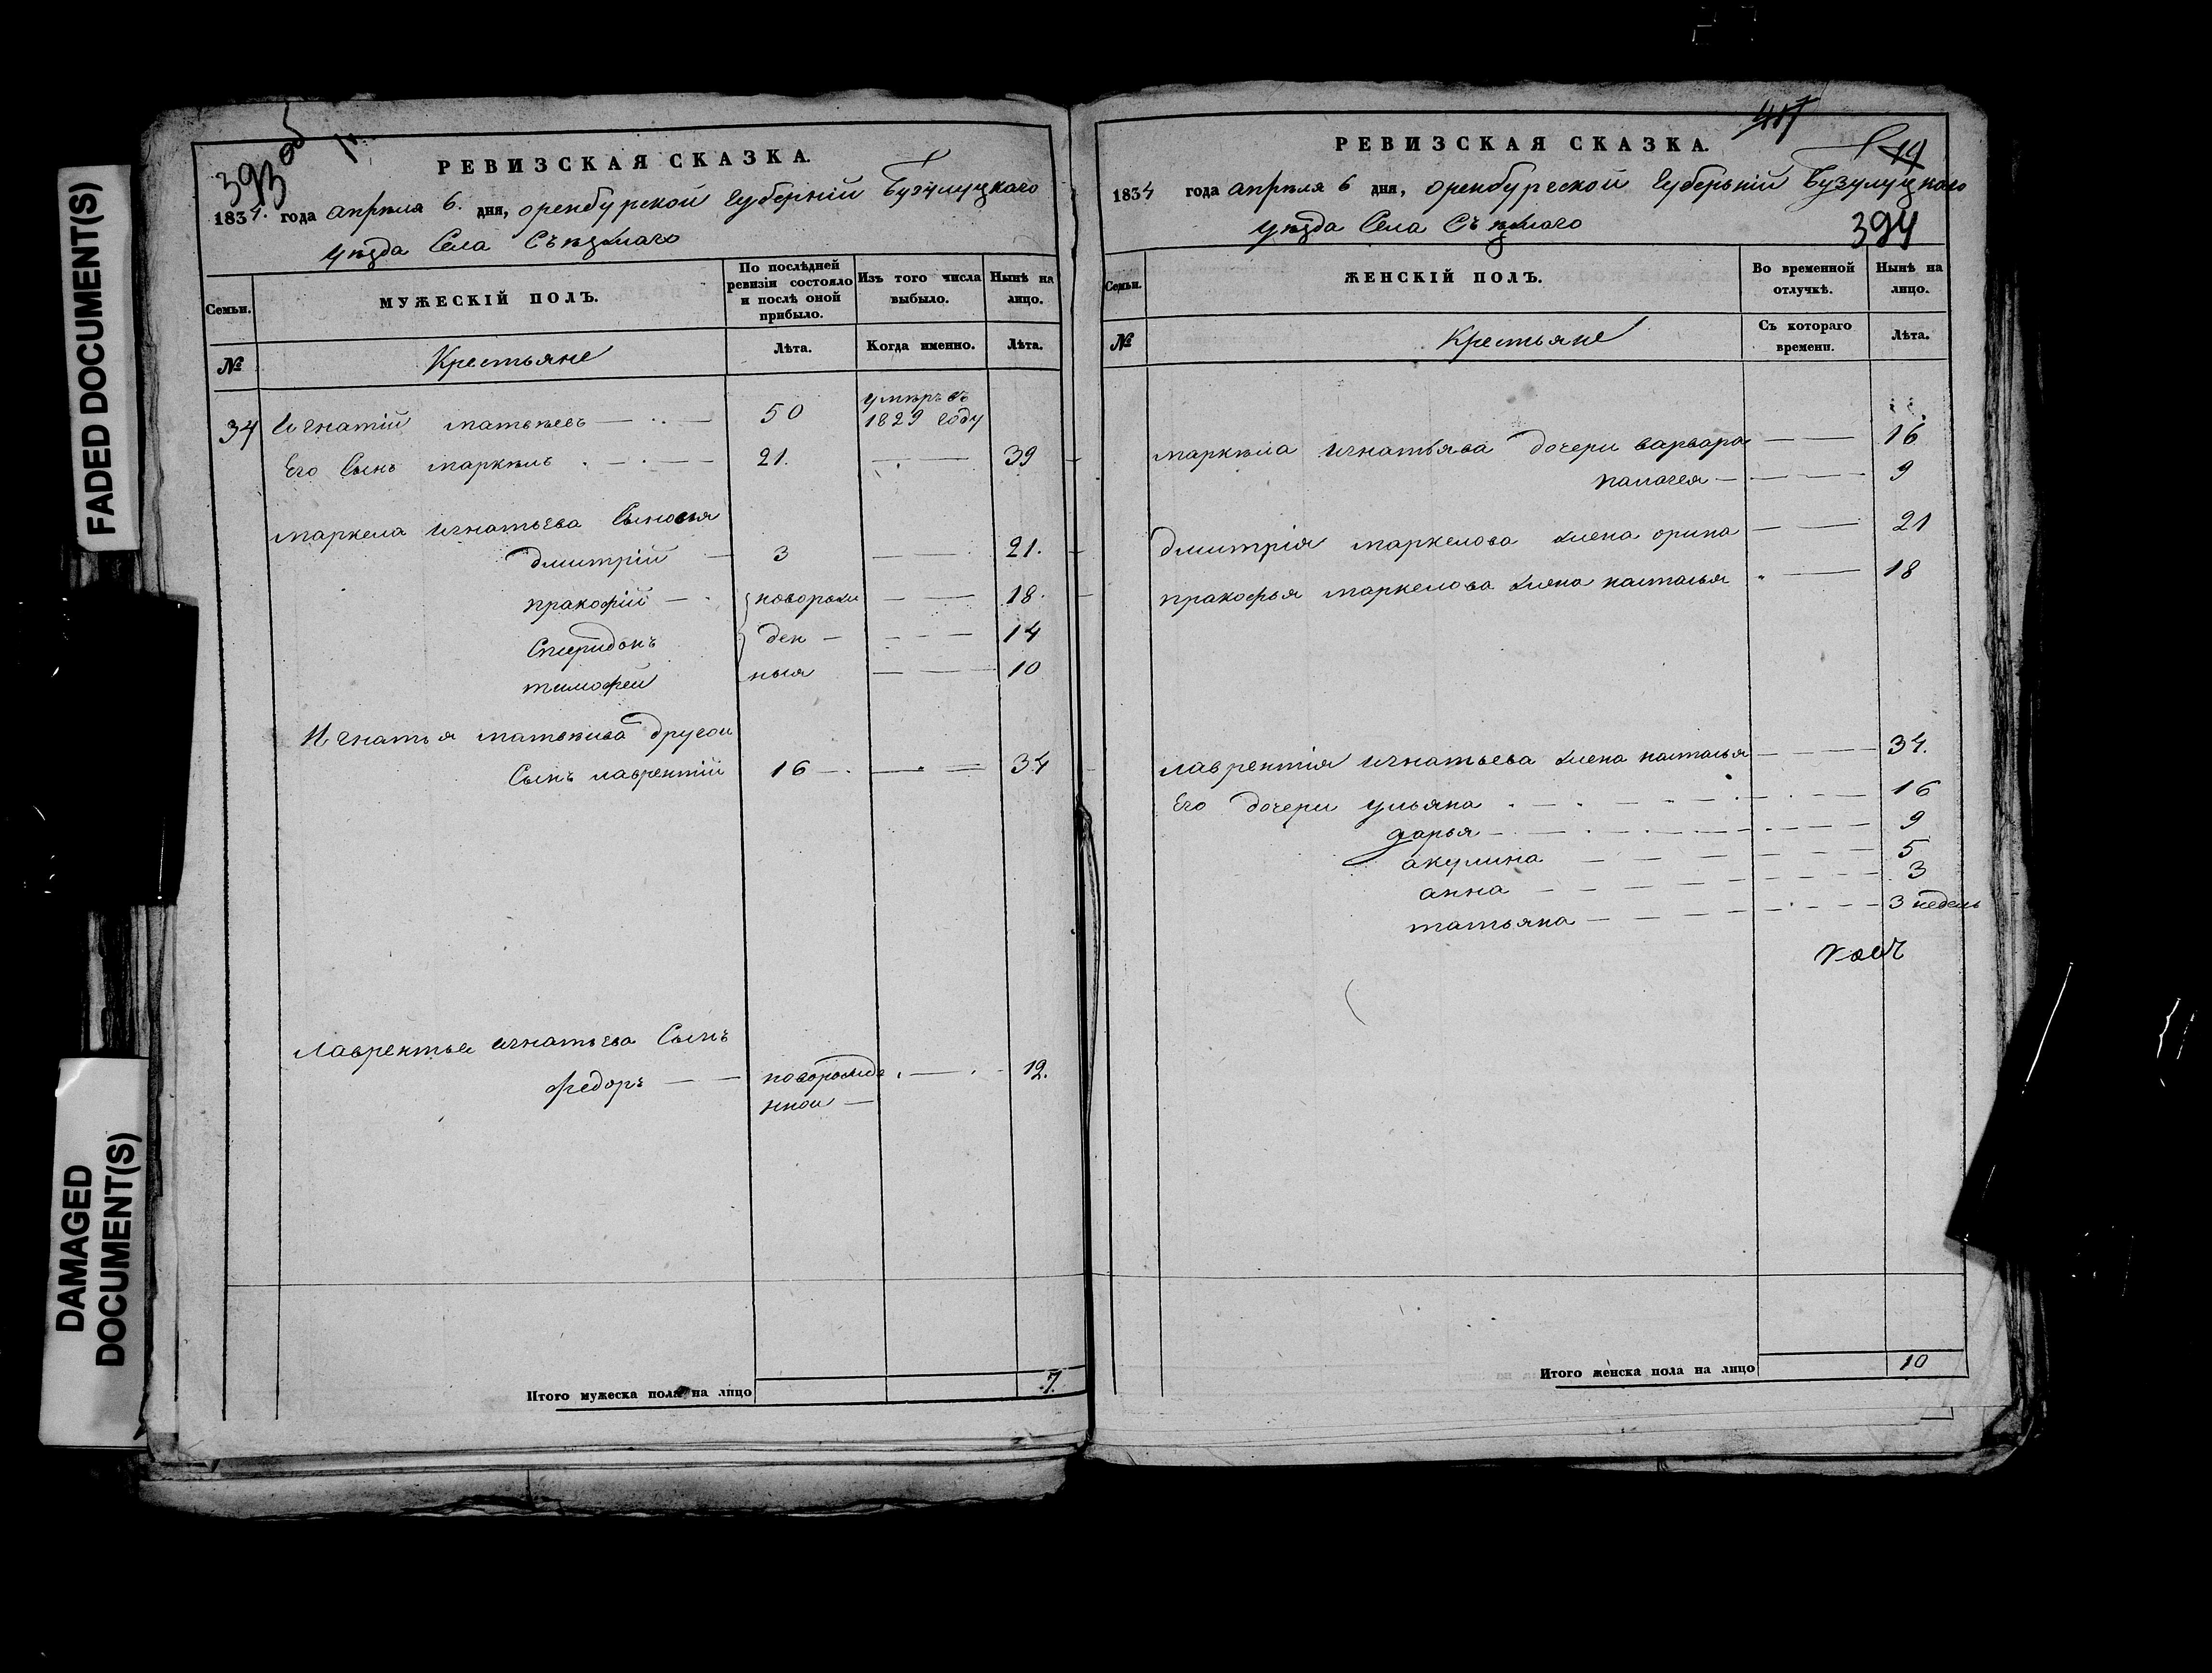 FADED DOCUMENT(S)
DAMAGED
DOCUMENT(S)
393 об
РЕВИЗСКАЯ СКАЗКА.
1834. года апреля 6. дня, оренбурской губерніи Бузулуцкаго
уезда Села Съезжаго
Семьи.
МУЖЕСКІЙ ПОЛЪ.
По послѣдней ревизіи состояло и послѣ оной прибыло.
Изъ того числа выбыло.
Нынѣ на лицо.
№
Крестьяне
Лѣта.
Когда именно.
Лѣта.
34 Игнатій матвеевъ 50 умеръ въ 1829 году
Его Сынъ маркелъ 21. 39
маркела игнатьева Сыновья
дмитрій 3 21.
пракофій новорож 18.
Спиридонъ ден 14
тимофей ныя 10
Игнатья матвеива другои
Сынъ лаврентій 16 34
Лаврентья игнатьева Сынъ
федоръ новорожде 12.
нной
Итого мужеска пола на лицо 7.
417
19
РЕВИЗСКАЯ СКАЗКА.
1834 года апреля 6 дня, оренбургской губерьніи Бузулуцкаго
уезда Села Съезжаго 394
Семьи.
ЖЕНСКІЙ ПОЛЪ.
Во временной отлучкѣ.
Нынѣ на лицо.
№
Крестьяне
Съ котораго времени.
Лѣта.
маркела игнатьява дочери варвара 16
палагея 9
дмитрія маркелова жена орина 21
пракофья маркелова жена насталья 18
лаврентія игнатьева жена насталья 34.
Его дочери ульяна 16
дарья 9
акулина 5
анна 3
татьяна 3 недель
Итого женска пола на лицо 10